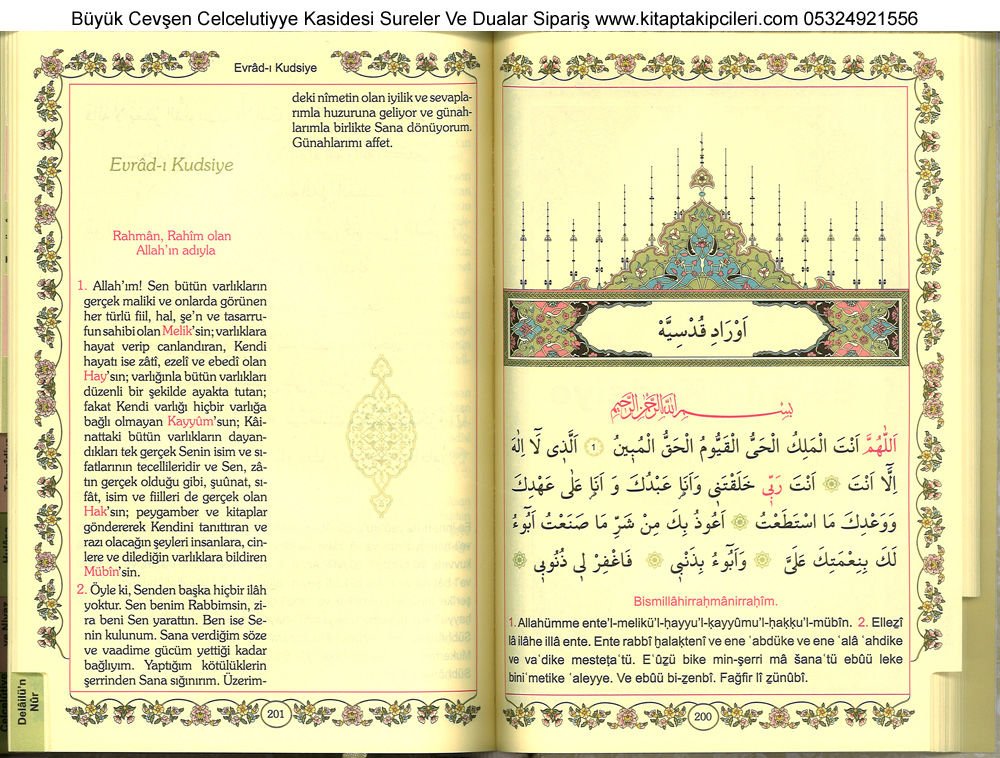 Büyük Cevşen Celcelutiyye Kasidesi Sureler Ve Dualar Sipariş www.kitaptakipcileri.com 05324921556
Evrâd-ı Kudsiye
Evrâd-ı Kudsiye
Rahmân, Rahîm olan
Allah'ın adıyla
1. Allah'ım! Sen bütün varlıkların
gerçek maliki ve onlarda görünen
her türlü fiil, hal, şe'n ve tasarru-
fun sahibi olan Melik'sin; varlıklara
hayat verip canlandıran, Kendi
hayatı ise zâtî, ezelî ve ebedî olan
Hay'sın; varlığınla bütün varlıkları
düzenli bir şekilde ayakta tutan;
fakat Kendi varlığı hiçbir varlığa
bağlı olmayan Kayyûm'sun; Kâi-
nattaki bütün varlıkların dayan-
dıkları tek gerçek Senin isim ve sı-
fatlarının tecellileridir ve Sen, zâ-
tın gerçek olduğu gibi, şuûnat, sı-
fât, isim ve fiilleri de gerçek olan
Hak'sın; peygamber ve kitaplar
göndererek Kendini tanıttıran ve
razı olacağın şeyleri insanlara, cin-
lere ve dilediğin varlıklara bildiren
Mübîn'sin.
2. Öyle ki, Senden başka hiçbir ilâh
yoktur. Sen benim Rabbimsin, zi-
ra beni Sen yarattın. Ben ise Se-
nin kulunum. Sana verdiğim söze
ve vaadime gücüm yettiği kadar
bağlıyım. Yaptığım kötülüklerin
şerrinden Sana sığınırım. Üzerim-
deki nîmetin olan iyilik ve sevapla-
rımla huzuruna geliyor ve günah-
larımla birlikte Sana dönüyorum.
Günahlarımı affet.
201
Delâilü'n
Nûr
اَوْرَادِ قُدْسِيَّهْ
بِسْمِ اللّٰهِ الرَّحْمٰنِ الرَّحِيمِ
اَللّٰهُمَّ اَنْتَ الْمَلِكُ الْحَىُّ الْقَيُّومُ الْحَقُّ الْمُبِينُ ١ اَلَّذِى لَٓا اِلٰهَ
اِلَّٓا اَنْتَ اَنْتَ رَبِّى خَلَقْتَنِى وَاَنَا عَبْدُكَ وَ اَنَا عَلٰى عَهْدِكَ
وَوَعْدِكَ مَا اسْتَطَعْتُ اَعُوذُ بِكَ مِنْ شَرِّ مَا صَنَعْتُ اَبُٓوءُ
لَكَ بِنِعْمَتِكَ عَلَىَّ وَاَبُٓوءُ بِذَنْبِى فَاغْفِرْ لِى ذُنُوبِى
Bismillâhirraḥmânirraḥîm.
1. Allahümme ente'l-melikü'l-ḥayyu'l-ḳayyûmu'l-ḥaḳḳu'l-mübîn. 2. Elleẕî
lâ ilâhe illâ ente. Ente rabbî ḫalaḳtenî ve ene ʿabdüke ve ene ʿalâ ʿahdike
ve vaʿdike mesteṭaʿtü. Eʿûẕü bike min-şerri mâ ṣanaʿtü ebûü leke
biniʿmetike ʿaleyye. Ve ebûü bi-ẕenbî. Fağfir lî ẕünûbî.
200